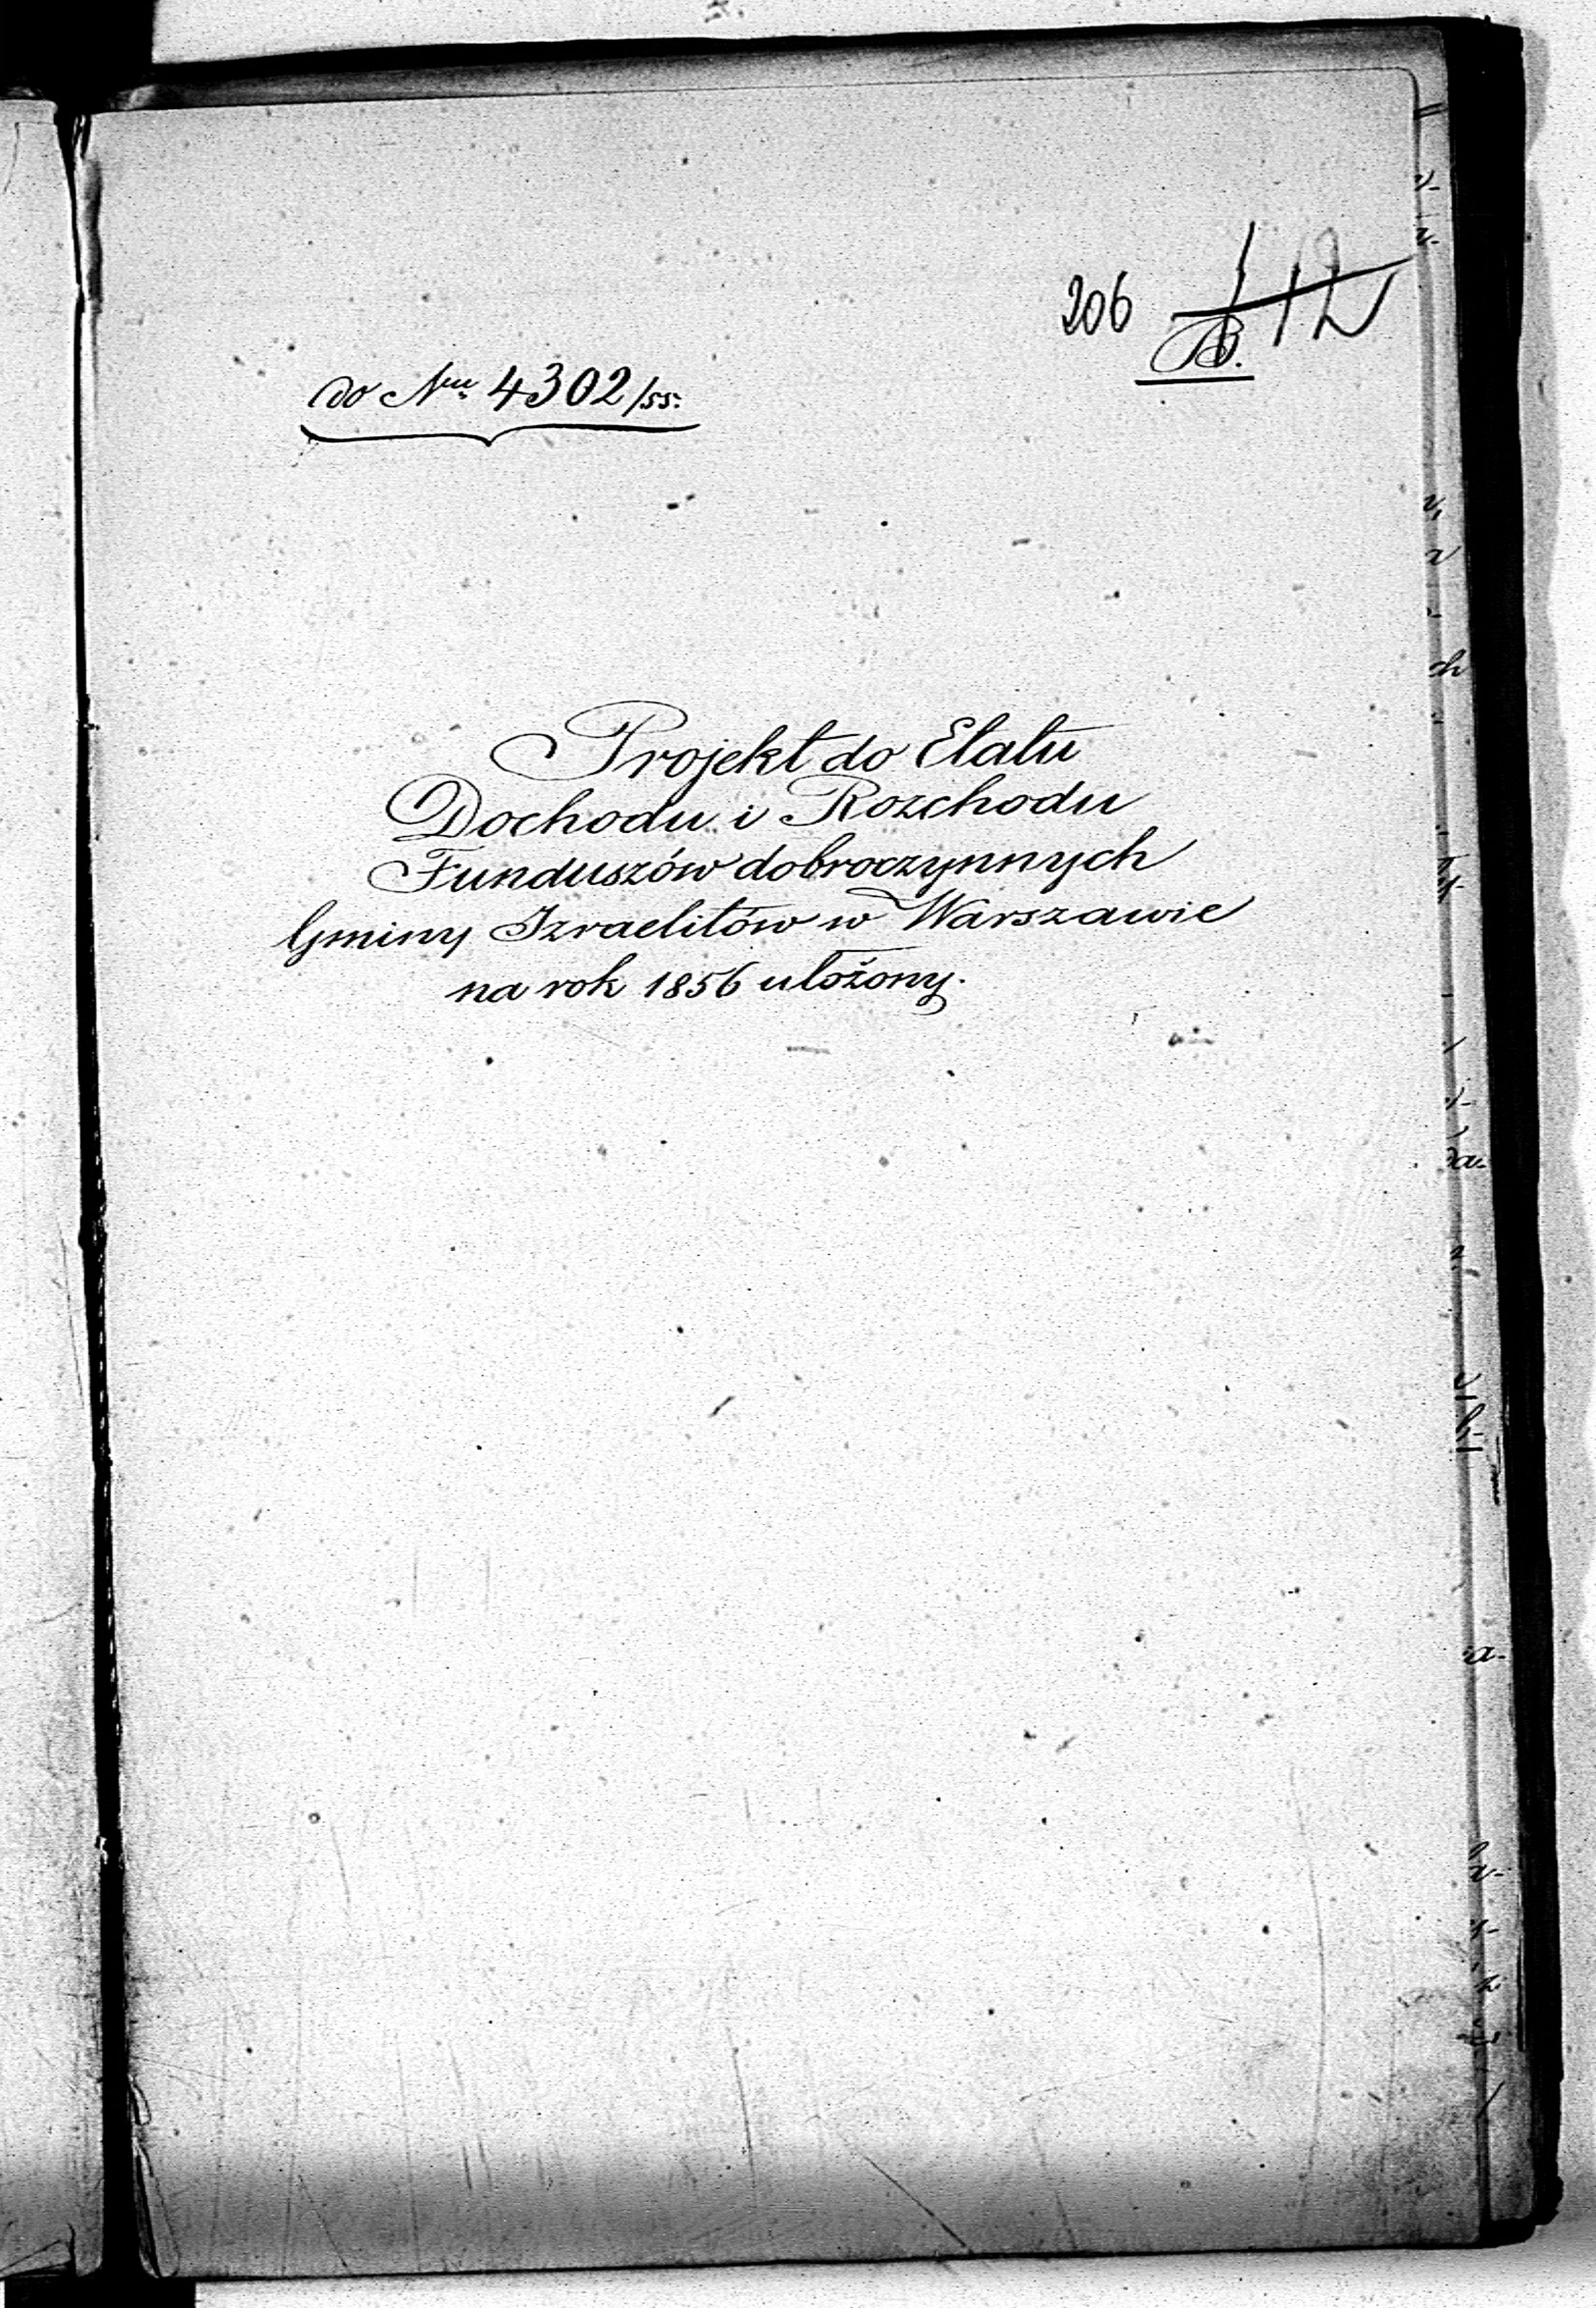 206
B.
do Nru 4302/55.
Projekt do Etatu
Dochodu i Rozchodu
Funduszów dobroczynnych
Gminy Izraelitów w Warszawie
na rok 1856 ułożony.